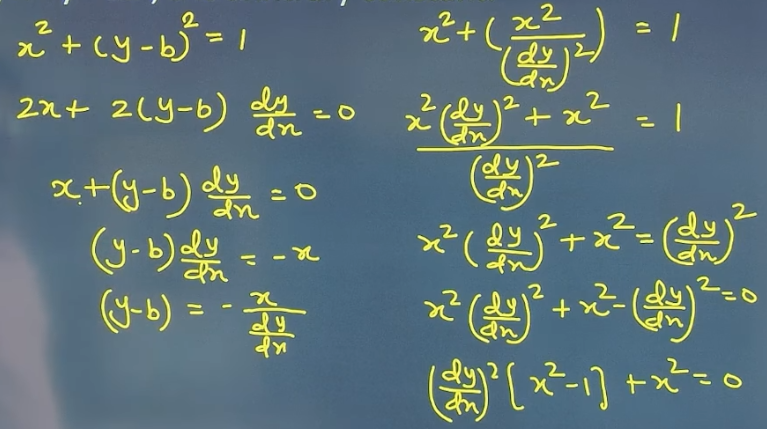 x² + (y-b)² = 1
2x + 2(y-b) dy/dx = 0
x + (y-b) dy/dx = 0
(y-b) dy/dx = -x
(y-b) = - x/(dy/dx)
x² + (x²/(dy/dx)²) = 1
(x² (dy/dx)² + x²)/(dy/dx)² = 1
x² (dy/dx)² + x² = (dy/dx)²
x² (dy/dx)² + x² - (dy/dx)² = 0
(dy/dx)² [x² - 1] + x² = 0